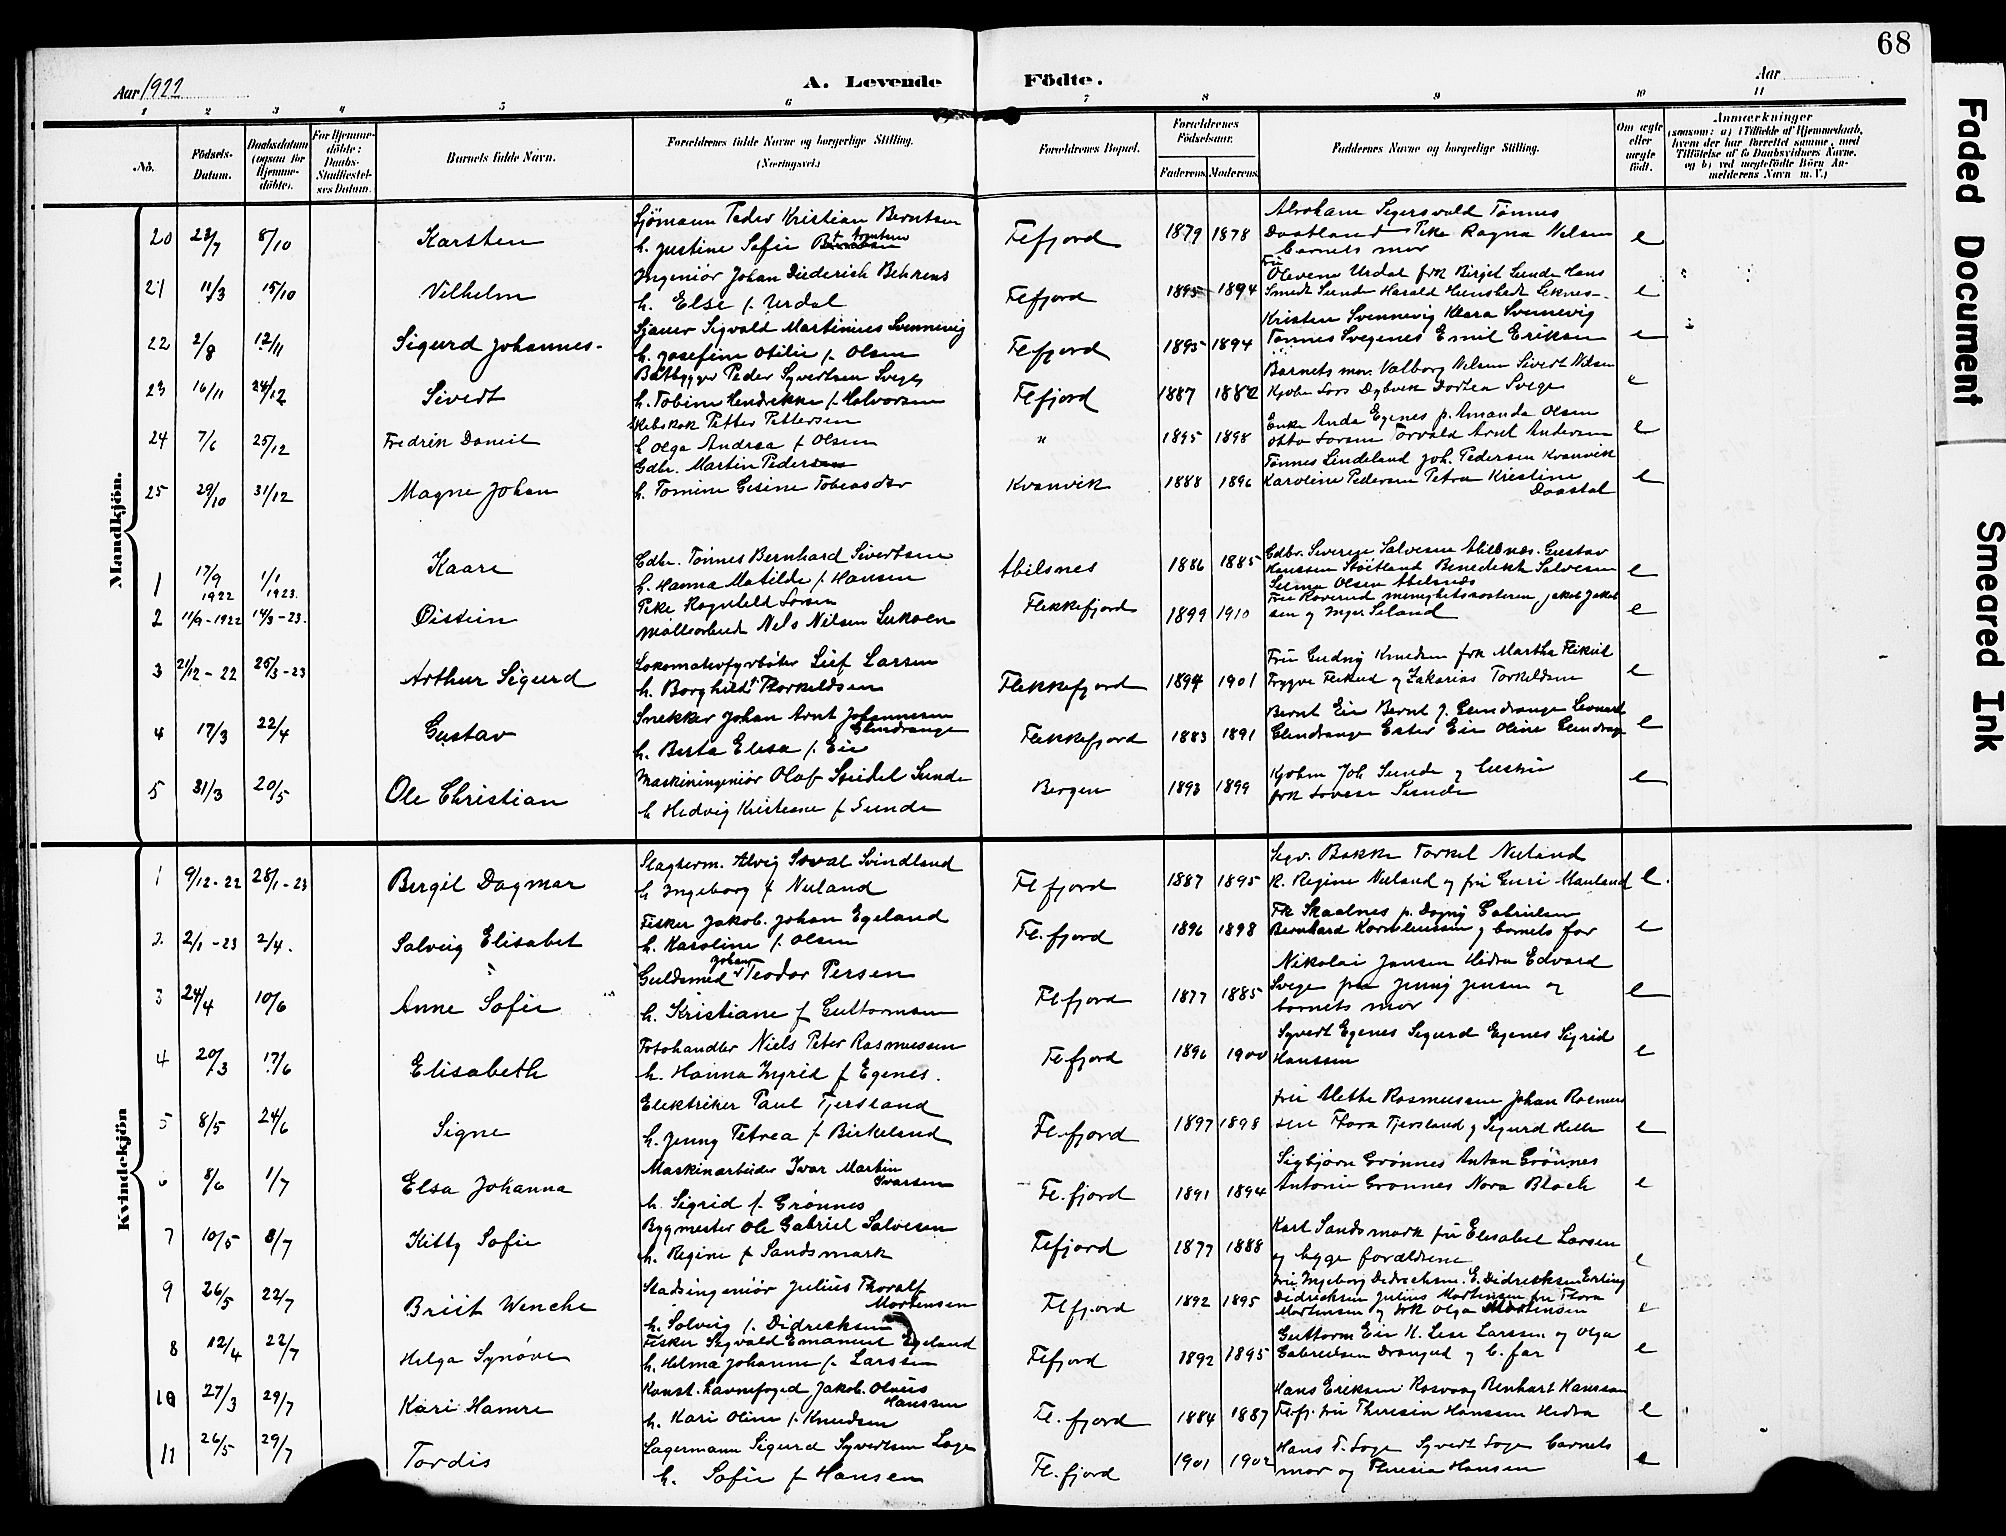 68
Aar 1922
A. Levende Födte.
Aar
1 2 3 4 5 6 7 8 9 10 11
No.
Födsels-Datum.
Daabsdatum (ogsaa for Hjemme-döbte).
For Hjemme-döbte: Daabs-Stadfæstel-ses Datum.
Barnets fulde Navn.
Forældrenes fulde Navne og borgerlige Stilling. (Næringsvei.)
Forældrenes Bopæl.
Forældrenes Födselsaar.
Faderens. Moderens.
Faddernes Navne og borgerlige Stilling.
Om ægte eller uægte födt.
Anmærkninger
(saasom: a) i Tilfælde af Hjemmedaab, hvem der har forrettet samme, med Tilföielse af to Daabsvidners Navne, og b) ved uægtefödte Börn Anmelderens Navn m. V.)
Mandkjön.
20 23/7 8/10 Karsten
Sjömann Peder Kristian Berntsen
h. Justine Sofie
Flfjord 1879 1878
Abraham Segersvold Tönnes
Ragna Nilsen
barnets mor
e
21 11/3 15/10 Vilhelm
Ingeniör Johan Diederich Behrens
h. Else f. Urdal
Flfjord 1895 1894
Fru
Olevene Urdal frk Birgit Sunde Hans
Smedt Sunde Harald
e
22 2/8 12/11 Sigurd Johannes
Sjauer Sigvald Martinius Svennevig
h. Josefine Otilie f. Olsen
Flfjord 1895 1894
Kristen Svennevig Klara Svennevig
Tönnes Svegenes Emil Eriksen
e
23 16/11 24/12 Sivert
Båtbygger Peder Syvertsen Svege
h. Tobine Hendrikke f. Halvorsen
Flfjord 1887 1882
Barnets mor. Valborg Nilsen Sivert Nilsen
Lars Dybvik Dortea Svege
e
24 7/6 25/12 Fredrik Daniel
Skibskok Petter Pettersen
h Olga Andrea f Olsen
" 1895 1898
Enke Anda Egenes p. Amanda Olsen
Otto Larsen Torvald Arnt Andersen
e
25 29/10 31/12 Magne Johan
Gdbr. Martin Pedersen
h. Tomine Gesine Tobiasdtr
Kvanvik 1888 1896
Tönnes Lindeland Joh. Pedersen Kvanvik
Karoline Pedersen Petra Kristine
Daastöl
e
1 17/9 1922 1/1 1923. Kaare
Gdbr. Tönnes Bernhard Sivertsen
h. Hanna Matilde f. Hansen
Abilsnes 1886 1885
Gdbr. Severin Salvesen Abilsnes. Gustav
Hanssen Stöitland Benedikte Salvesen
Selma Olsen Abelsnes
e
2 11/9-1922 14/3-23. Öistein
Pike Ragnhild Larsen
Nils Nilsen
Flekkefjord 1899 1910
Fru menighetssösteren Jakob Jakob
sen og Inger Seland
e
3 21/12-22 25/3-23 Arthur Sigurd
Lokomotivfyrböter Leif Larsen
h. Borghild Thorkeldsen
Flekkefjord 1894 1901
Fru Gudny Knudsen frk Martha Fikkul
Trygve og Zakarias Torkeldsen
e
4 17/3 22/4 Gustav
Snekker Johan Arnt Johannesen
Glendrange
h. Berta Elisa f. Eie
Flekkefjord 1883 1891
Bernt Eie Bernt J. Glendrange Leonard
Glendrange Ester Eie Oline Glendrange
e
5 31/3 20/5 Ole Christian
Maskiningeniör Olaf Seidel Sunde
h Hedvig Kristiane f Sunde
Bergen 1893 1899
Kjöbm Joh Sunde og hustru
frk Lovise Sunde
e
Kvindekjön
1 9/12-22 28/1-23 Bergit Dagmar
Slakterm. Alvig Svindland
h Ingeborg f Nuland
Flfjord 1887 1895
Sigv. Bakke Torkel Nuland
K. Regine Nuland og fru Guri Mauland
e.
2 2/1-23 2/4. Solveig Elisabet
Fisker Jakob Johan Egeland
h. Karoline f. Olsen
Fl.fjord 1896 1898
Fr Skaalnes p. Dagny Gabrielsen
Bernhard Korneliussen og barnets far
e
3 24/4 10/6 Anne Sofie
Guldsmed Johan Teodor Persen
h. Kristiane f Guttormsen
Flfjord 1877 1885
Nikolai Jansen Hidra Edvard
Svege fru Jenny Jensen og
barnets mor
e
4 20/3 17/6 Elisabeth
Fotohandler Niels Peter Rasmussen
h. Hanna Ingrid f Egenes.
Flfjord 1896 1900
Syvert Egenes Sigurd Egenes Sigrid
Hanssen
e
5 8/5 24/6 Signe
Elektriker Paul Tjersland
h. Jenny Petrea f. Birkeland
Fl.fjord 1897 1898
fru Alette Rasmussen Johan Rasmus
sen Thora Tjersland og Sigurd Helle
e
6 8/6 1/7 Elsa Johanna
Maskinarbeider Ivar Martin
Ivarsen
h. Sigrid f. Grönnes
Fl.fjord 1891 1894
Sigbjörn Grönnes Anton Grönnes
Antonie Grönnes Nora Bloch
e
7 10/5 8/7 Kitty Sofie
Bygmester Ole Gabriel Salvesen
h. Regine f Sandsmark
Flfjord 1877 1888
Karl Sandsmark fru Elisabet Larsen
og begge foreldrene
e
9 26/5 22/7 Briit Wenche
Stadsingeniör Julius Thoralf
Mortensen
h. Solveig f. Didriksen
Flfjord 1892 1895
fru Ingeborg Didriksen. E. Didriksen Erling
Didriksen Julius Mortensen fru Thora
Mortensen og frk Olga Mortensen
e
8 12/4 22/7 Helga Synöve
Fisker Sigvald Emanuel Egeland
h. Helma Johanne f. Larssen
Flfjord 1892 1895
Guttorm Eie H. Lise Larssen og Olga
Gabrielsen Drangeid og b. far
e
10 27/3 29/7 Kari Hamre
Konst. havnefoged Jakob Olaus
Hanssen
h. Kari Oline f. Knudsen
Fl. fjord 1884 1887
Hans Eriksen Rasvaag Renhart Hanssen
Flfj. fru Theresia Hanssen Hidra
e
11 26/5 29/7 Tordis
Lagermann Sigurd Syvertsen Loge
h. Sofie f Hansen
Fl.fjord 1901 1902
Hans T. Loge Syvert Loge barnets
mor og Theresia Hansen
e
Faded Document
Smeared Ink